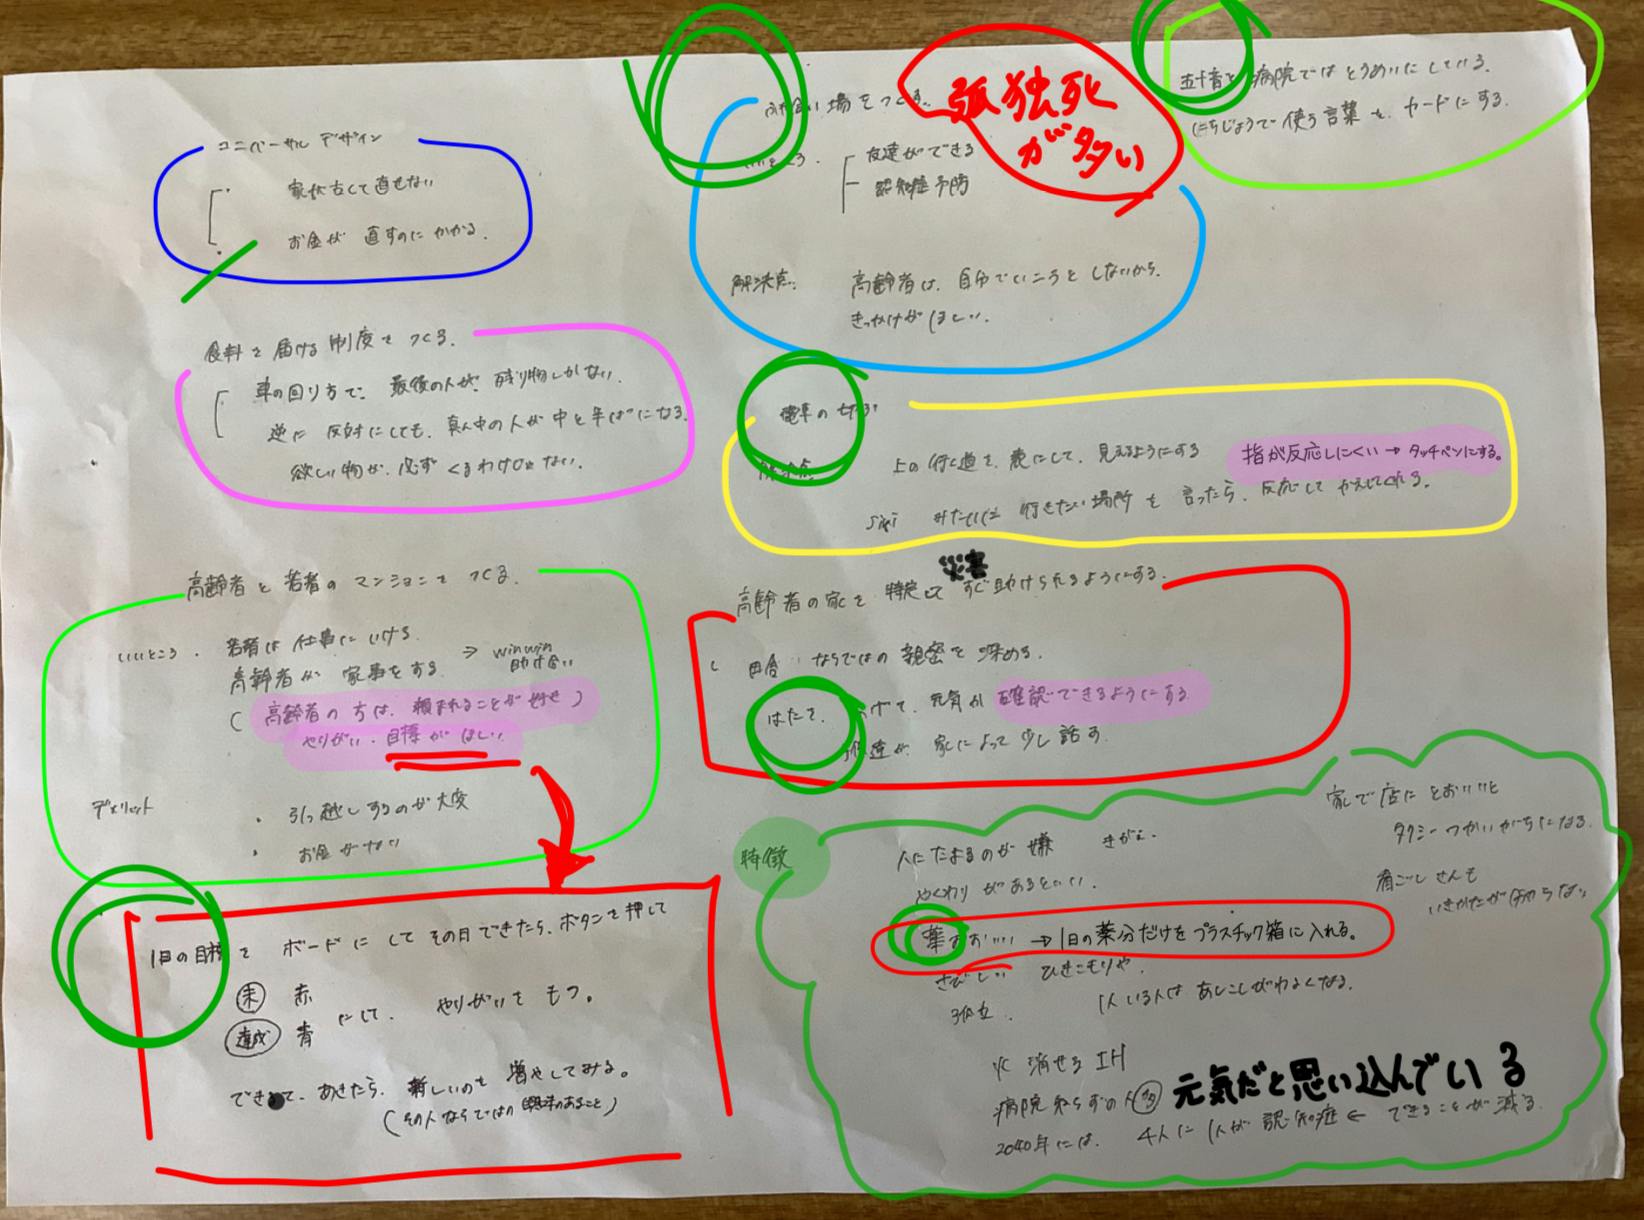 ユニバーサル デザイン
家が古くて直せない
お金が 直すのにかかる.
食料を届ける制度をつくる.
車の回り方で. 最後の人が. 残り物しかない.
逆に 反対にしても. 真ん中の人が中と半ぱになる.
欲しい物が. 必ず くるわけじゃない.
高齢者と若者のマンションをつくる.
いいところ. 若者は仕事にいける
高齢者が 家事をする → winwin
助け合い
(高齢者の方は. 頼まれることが好せ)
やりがい・目標がほしい
デメリット
・引っ越しするのが大変
・お金がない
1日の目標を ボードにして その日できたら. ボタンを押して
未 赤
達成 青 にして. やりがいをもつ。
できて. あきたら. 新しいのを増やしてみる。
(その人ならではの興味のあること)
場をつくる.
孤独死
が多い
友達ができる
認知症予防
解決点: 高齢者は. 自分でいこうとしないから.
きっかけがほしい.
五十音を 病院ではとうめいにしている.
にちじょうで使う言葉を. カードにする.
電車の
上の行く道を. 表にして. 見えるようにする
指が反応しにくい→タッチペンにする。
siri みたいに 行きたい場所を言ったら. 反応して かえしてくれる.
災害
高齢者の家を 特定して すぐ助けられるようにする.
田舎 ならではの親密を深める.
はたを. あげて. 元気か 確認できるようにする
達が. 家によって少し話す.
特徴
家で店にとおいいと
タクシーつかいがちになる.
人にたよるのが嫌
やくわりがあるといい.
肩ごしさんも
いきかたが分からない
薬がおおい → 1日の薬分だけをプラスチック箱に入れる。
さびしい ひきこもりや.
孤立. 1人いる人は あしこしがわるくなる.
火 消せる IH
病院知らずの人多 元気だと思い込んでいる
2040年には. 4人に1人が認知症 ← できることが減る.